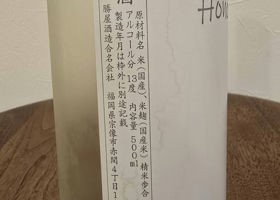 酒
原材料名 米(国産)、米麹(国産米) 精米歩合
アルコール分 13度 内容量 500ml
製造年月は枠外に別途記載
勝屋酒造合名会社 福岡県宗像市赤間4丁目1